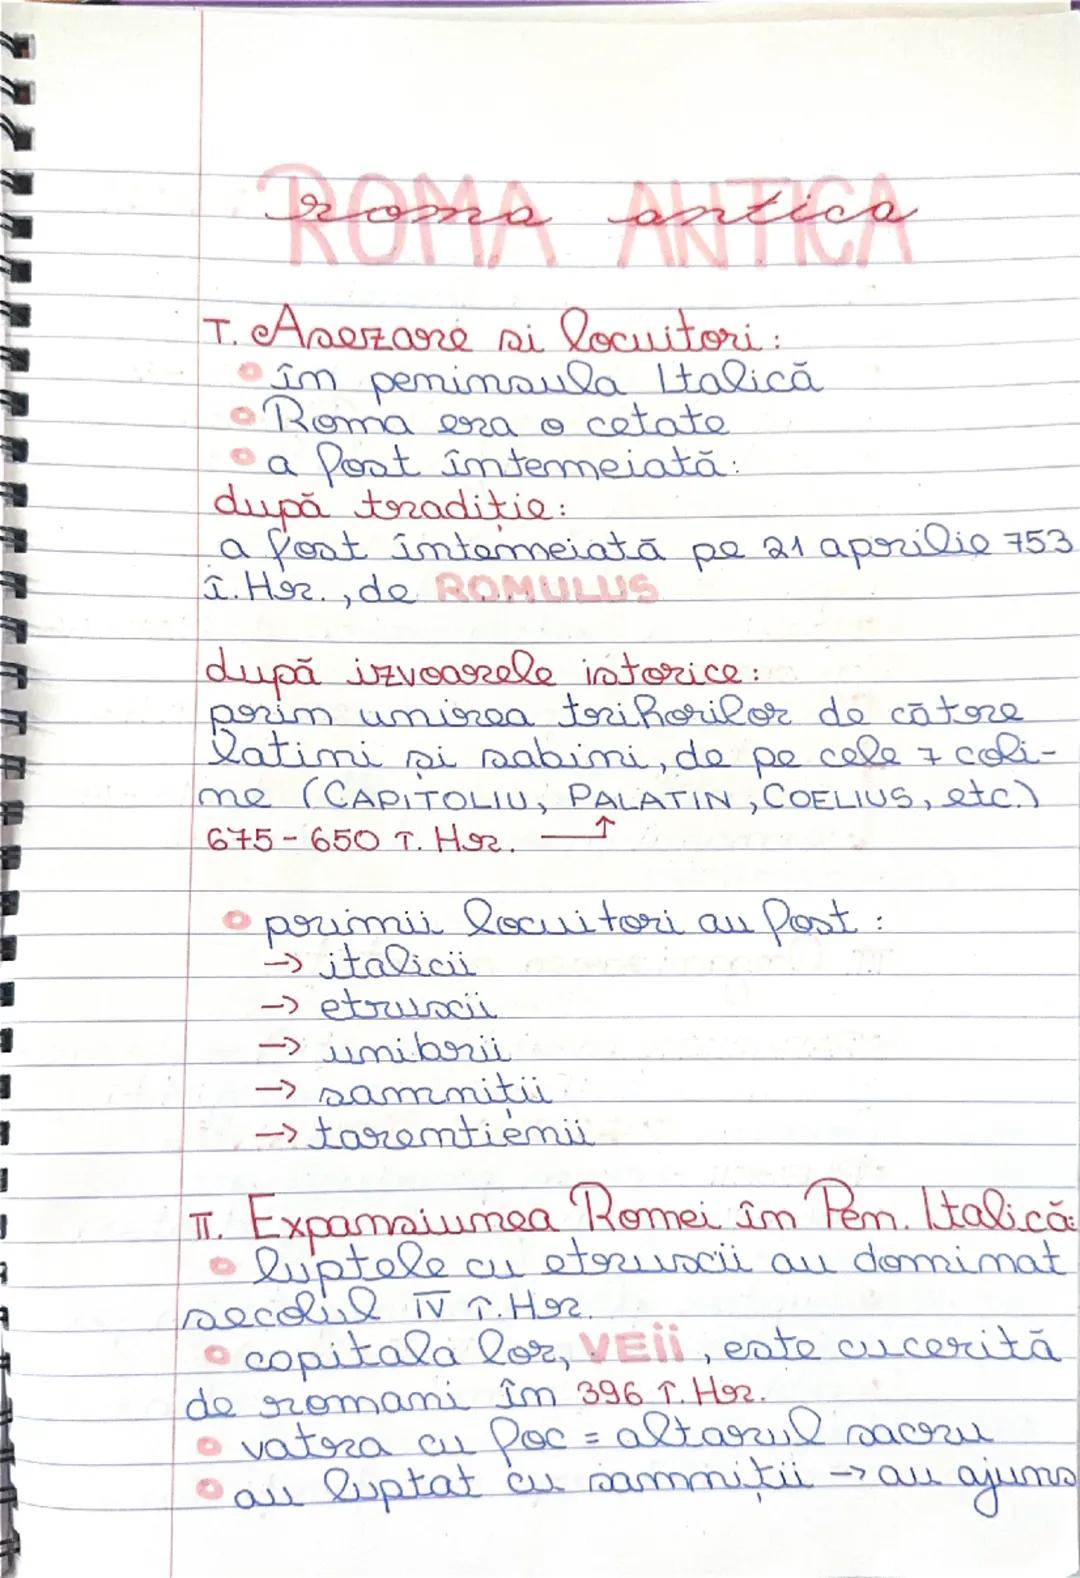 ROMA ANTICA
roma antica
I. Asezare si locuitori:
în peninsula Italică
Roma era o cetate
a fost întemeiată:
după tradiție:
a fost întemeiată pe 21 aprilie 753
î.Hr., de ROMULUS
după izvoarele istorice:
prin unirea triburilor de către
latini si sabini, de pe cele 7 coli-
ne (CAPITOLIU, PALATIN, COELIUS, etc.)
675-650 î.Hr. →
primii locuitori au fost:
→ italicii
→ etruscii
→ umibrii
→ samniții
→ tarentienii
II. Expansiunea Romei în Pen. Italică:
luptele cu etruscii au dominat
secolul IV î.Hr.
capitala lor, VEII, este cucerită
de romani în 396 î.Hr.
vatra cu foc = altarul sacru
au luptat cu samniții → au ajuns